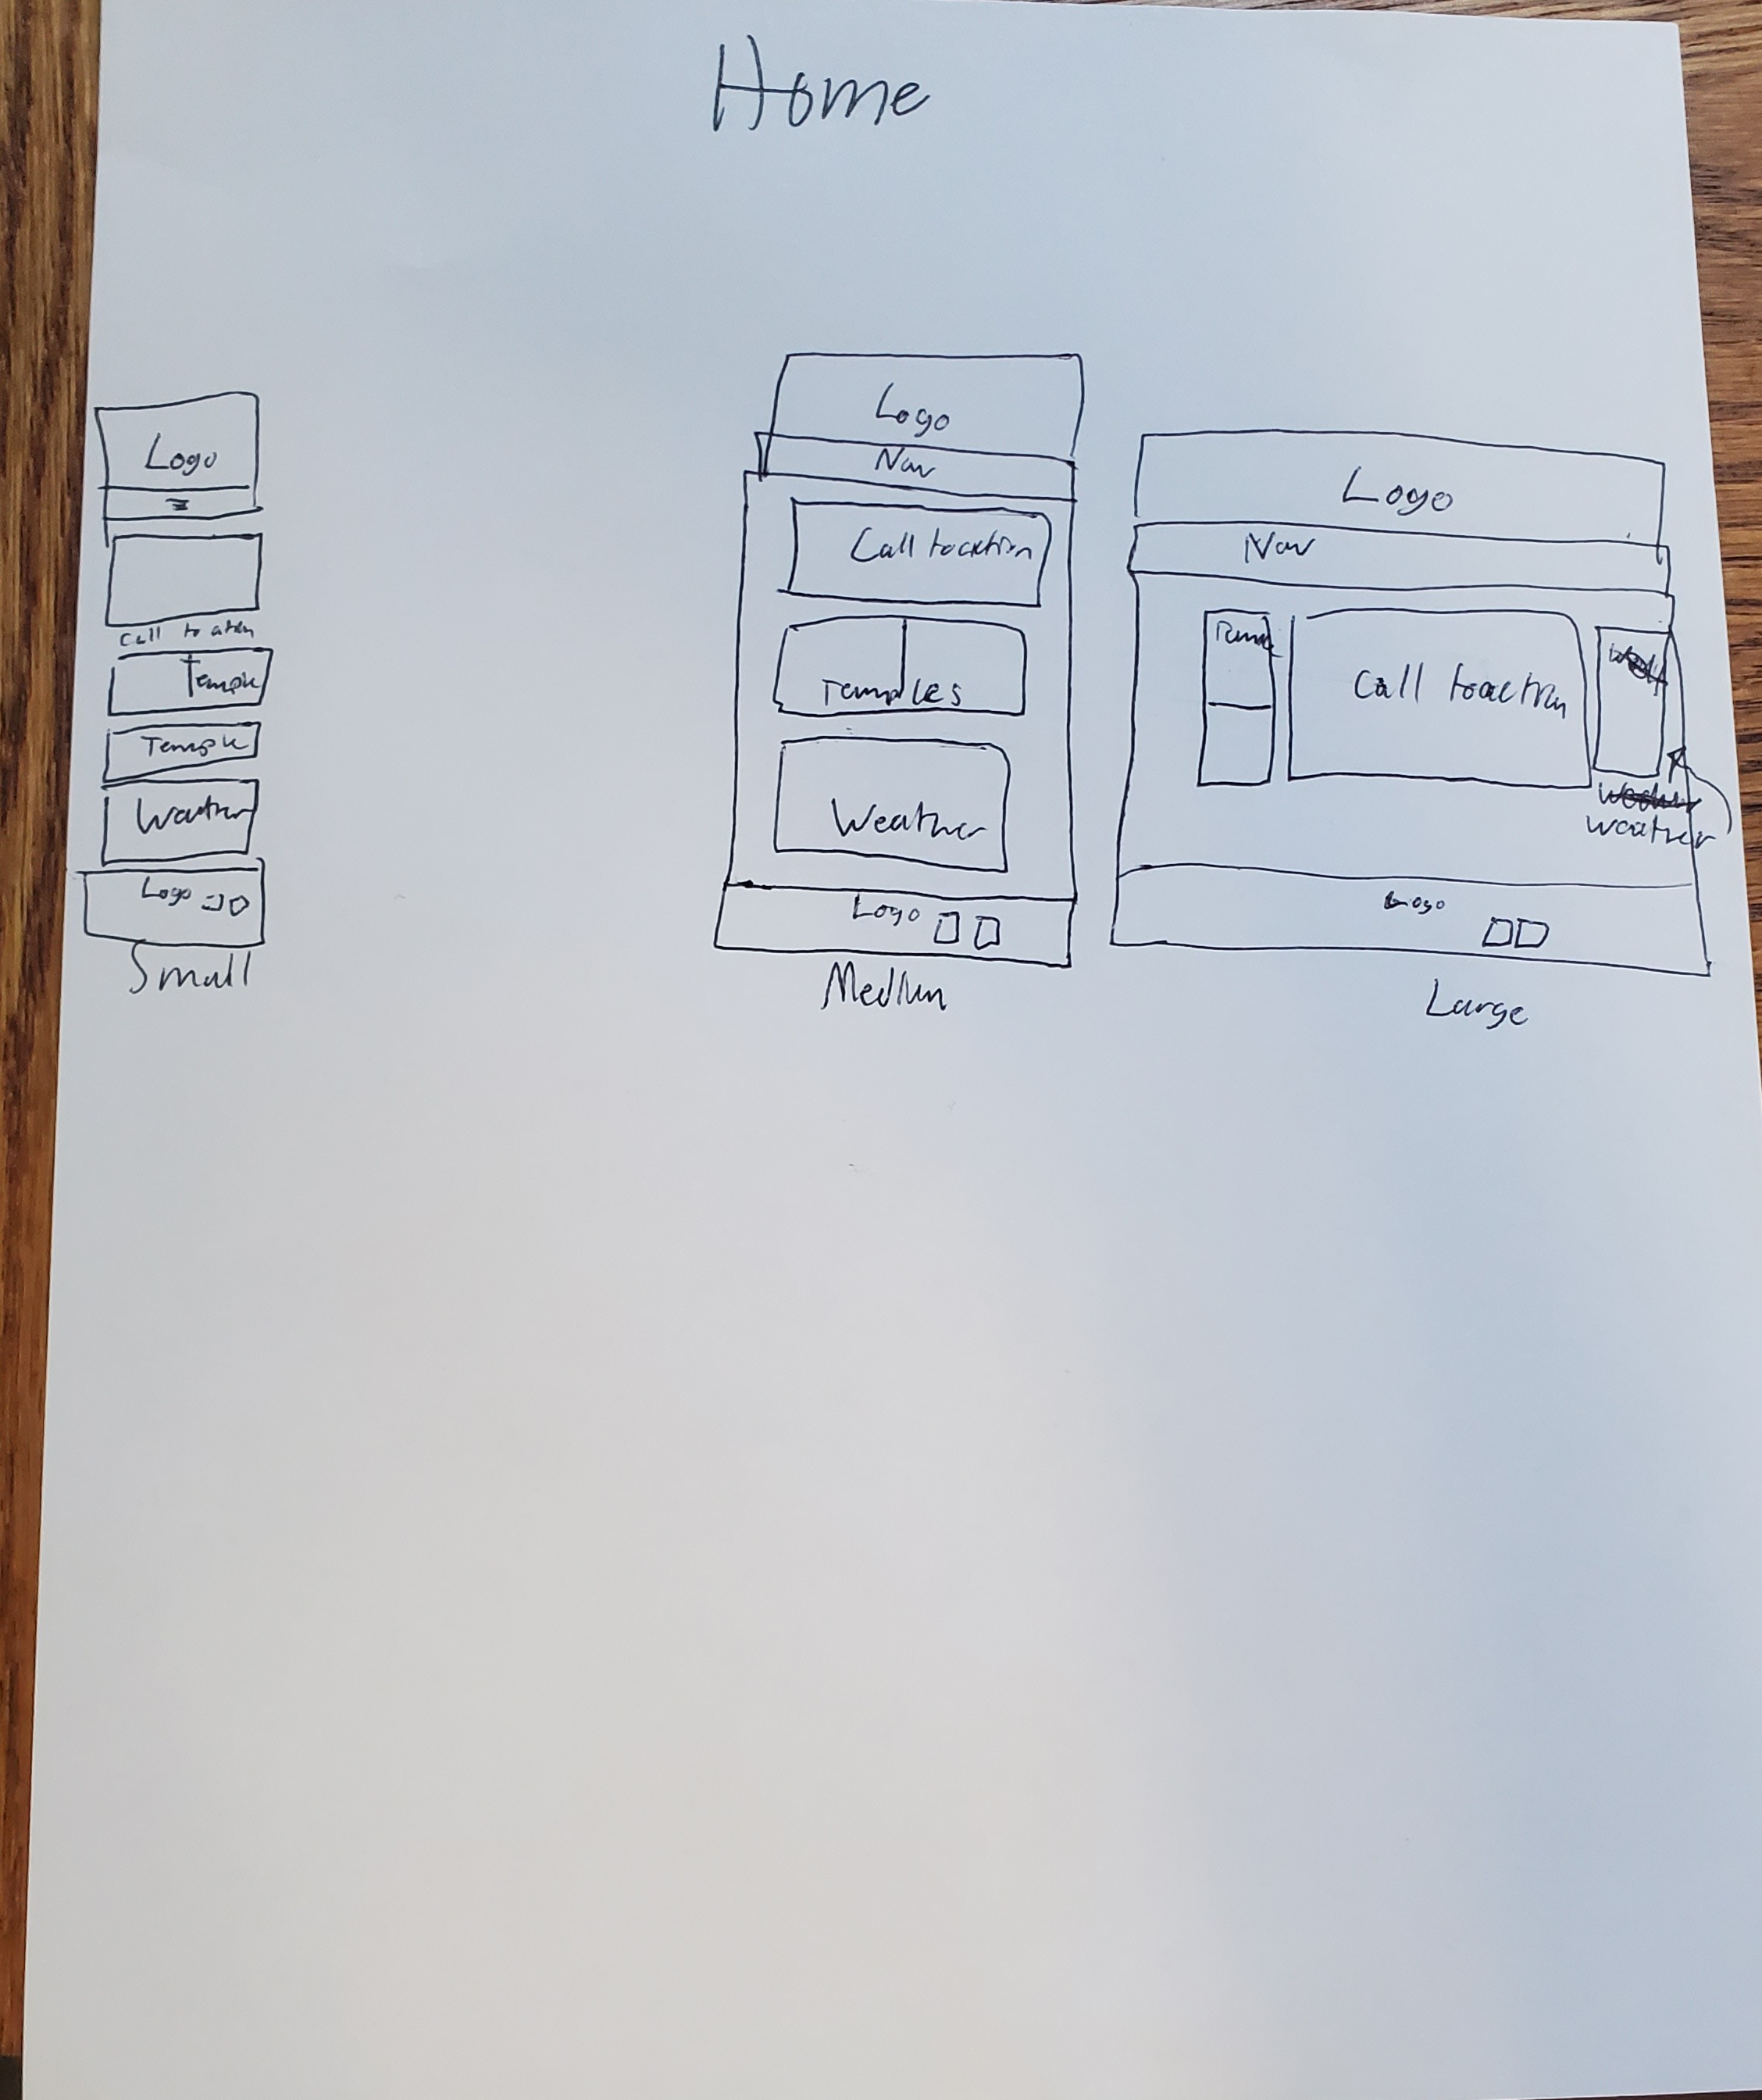 Home
Logo
Call to action
Temple
Temple
Weather
Logo
Small
Logo
Nav
Call to action
Temples
Weather
Logo
Medium
Logo
Nav
Call to action
weather
Logo
Large